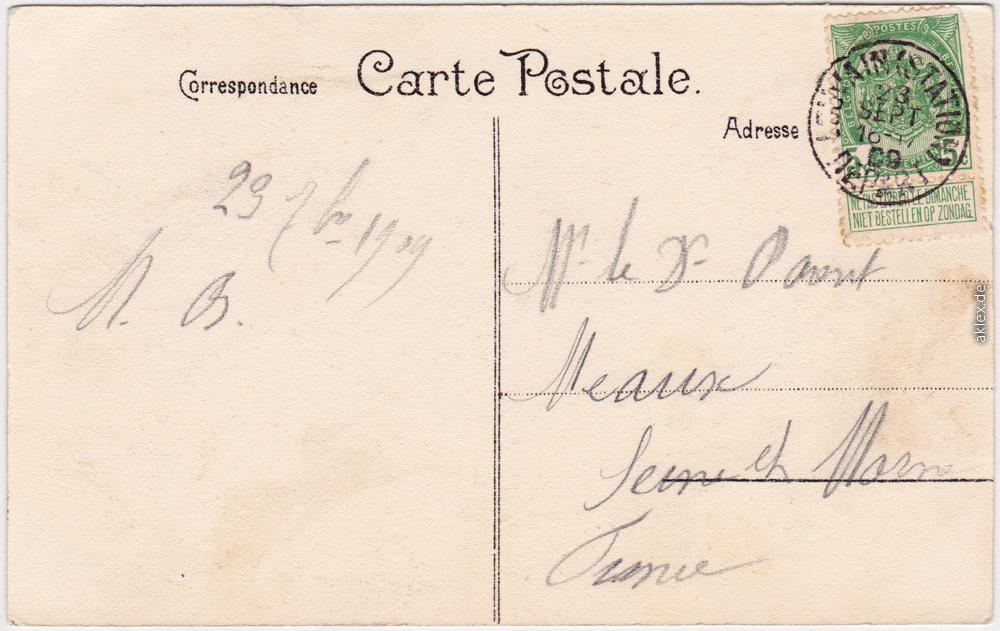 Carte Postale.
Correspondance
Adresse
POSTES
5
LOUVAIN (STATION)
23
SEPT
16-17
09
DEPART
NE PAS LIVRER LE DIMANCHE
NIET BESTELLEN OP ZONDAG.
23 7bre 1909
M. B.
Mr le Dr
Meaux
Seine et Marne
France
aklex.de